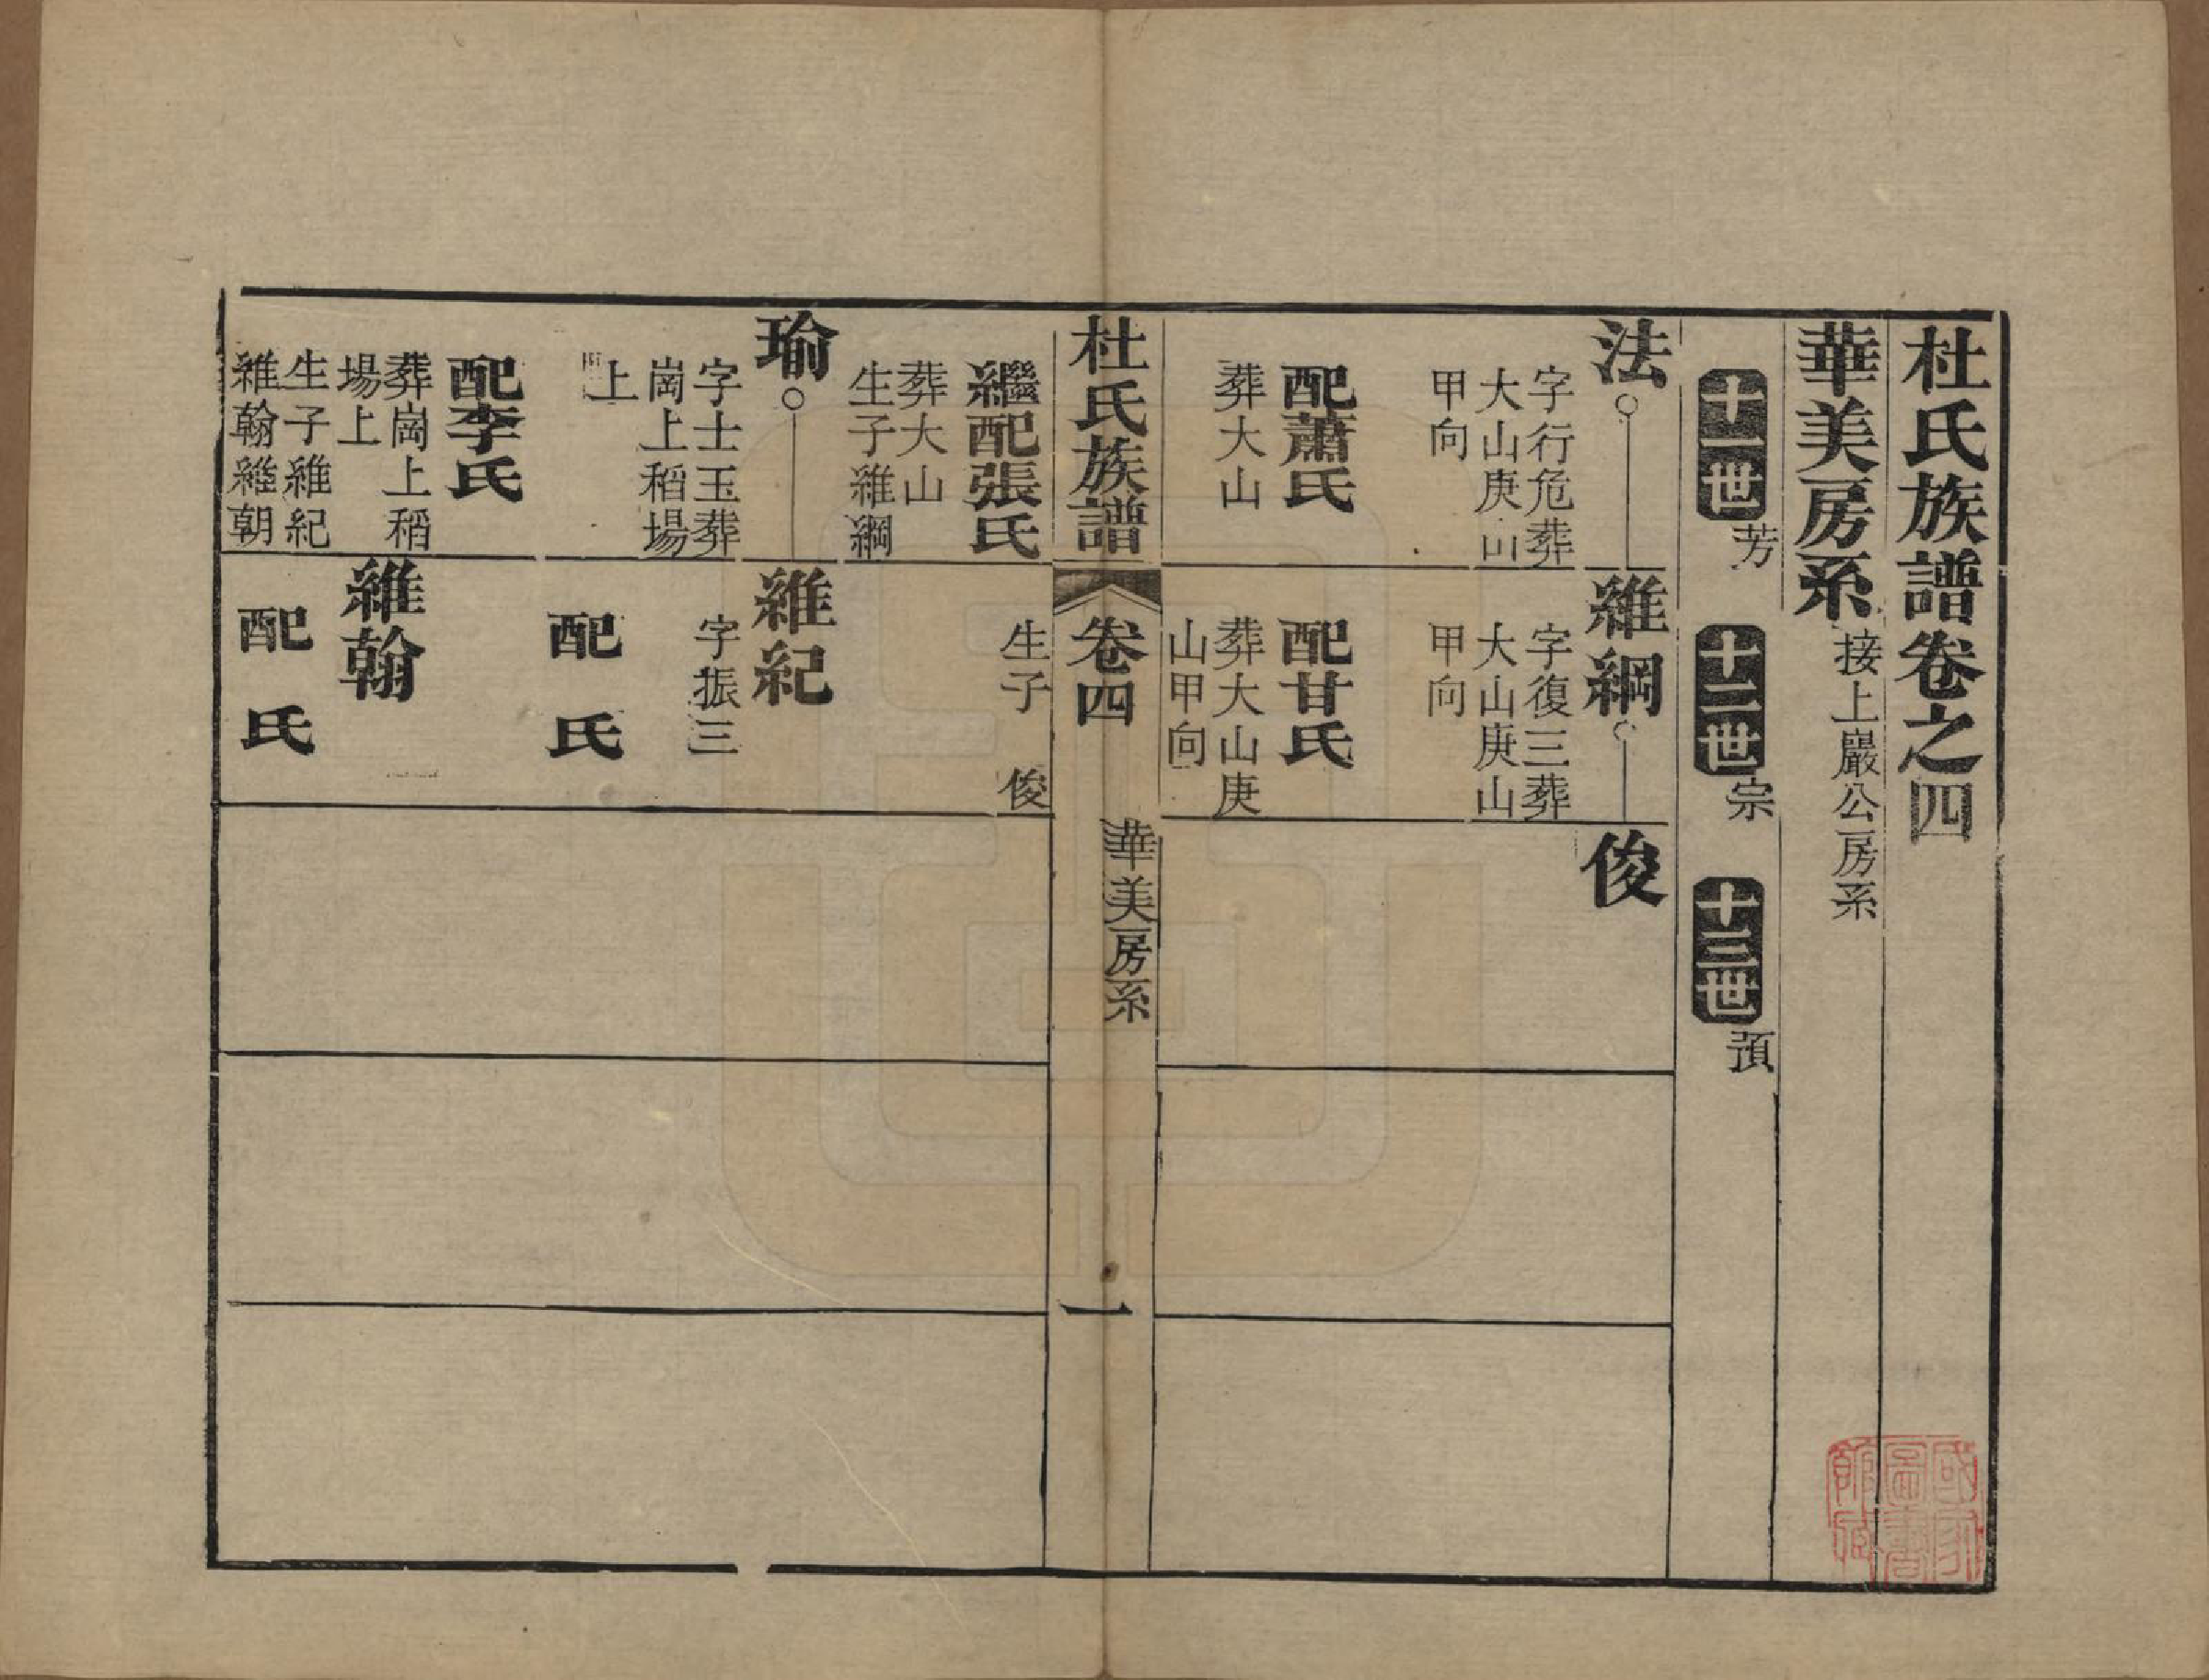 杜氏族譜卷之四
華美房系 接上巖公房系
十一世 芳 十二世 宗 十三世 預
法
字行危葬
大山庚山
甲向
配蕭氏
葬大山
維綱
字復三葬
大山庚山
甲向
配甘氏
葬大山庚
山甲向
俊
杜氏族譜 卷四 華美房系 一
繼配張氏
葬大山
生子維綱
生子 俊
瑜
字士玉葬
崗上稻場
上
配李氏
葬崗上稻
場上
生子維紀
維翰維朝
維紀
字振三
配 氏
維翰
配 氏
國家圖書館藏